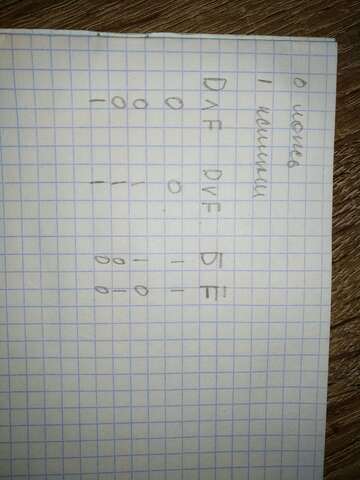 0 ложь
1 истина
D∧F D∨F D̅ F̅
0 0 1 1
0 1 1 0
0 1 0 1
1 1 0 0